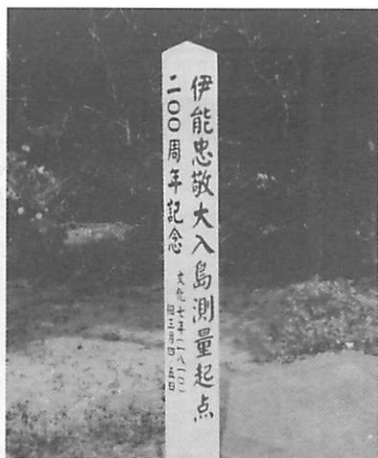 伊能忠敬大入島測量起点
二〇〇周年記念
文化七年(一八一〇)
旧三月四・五日